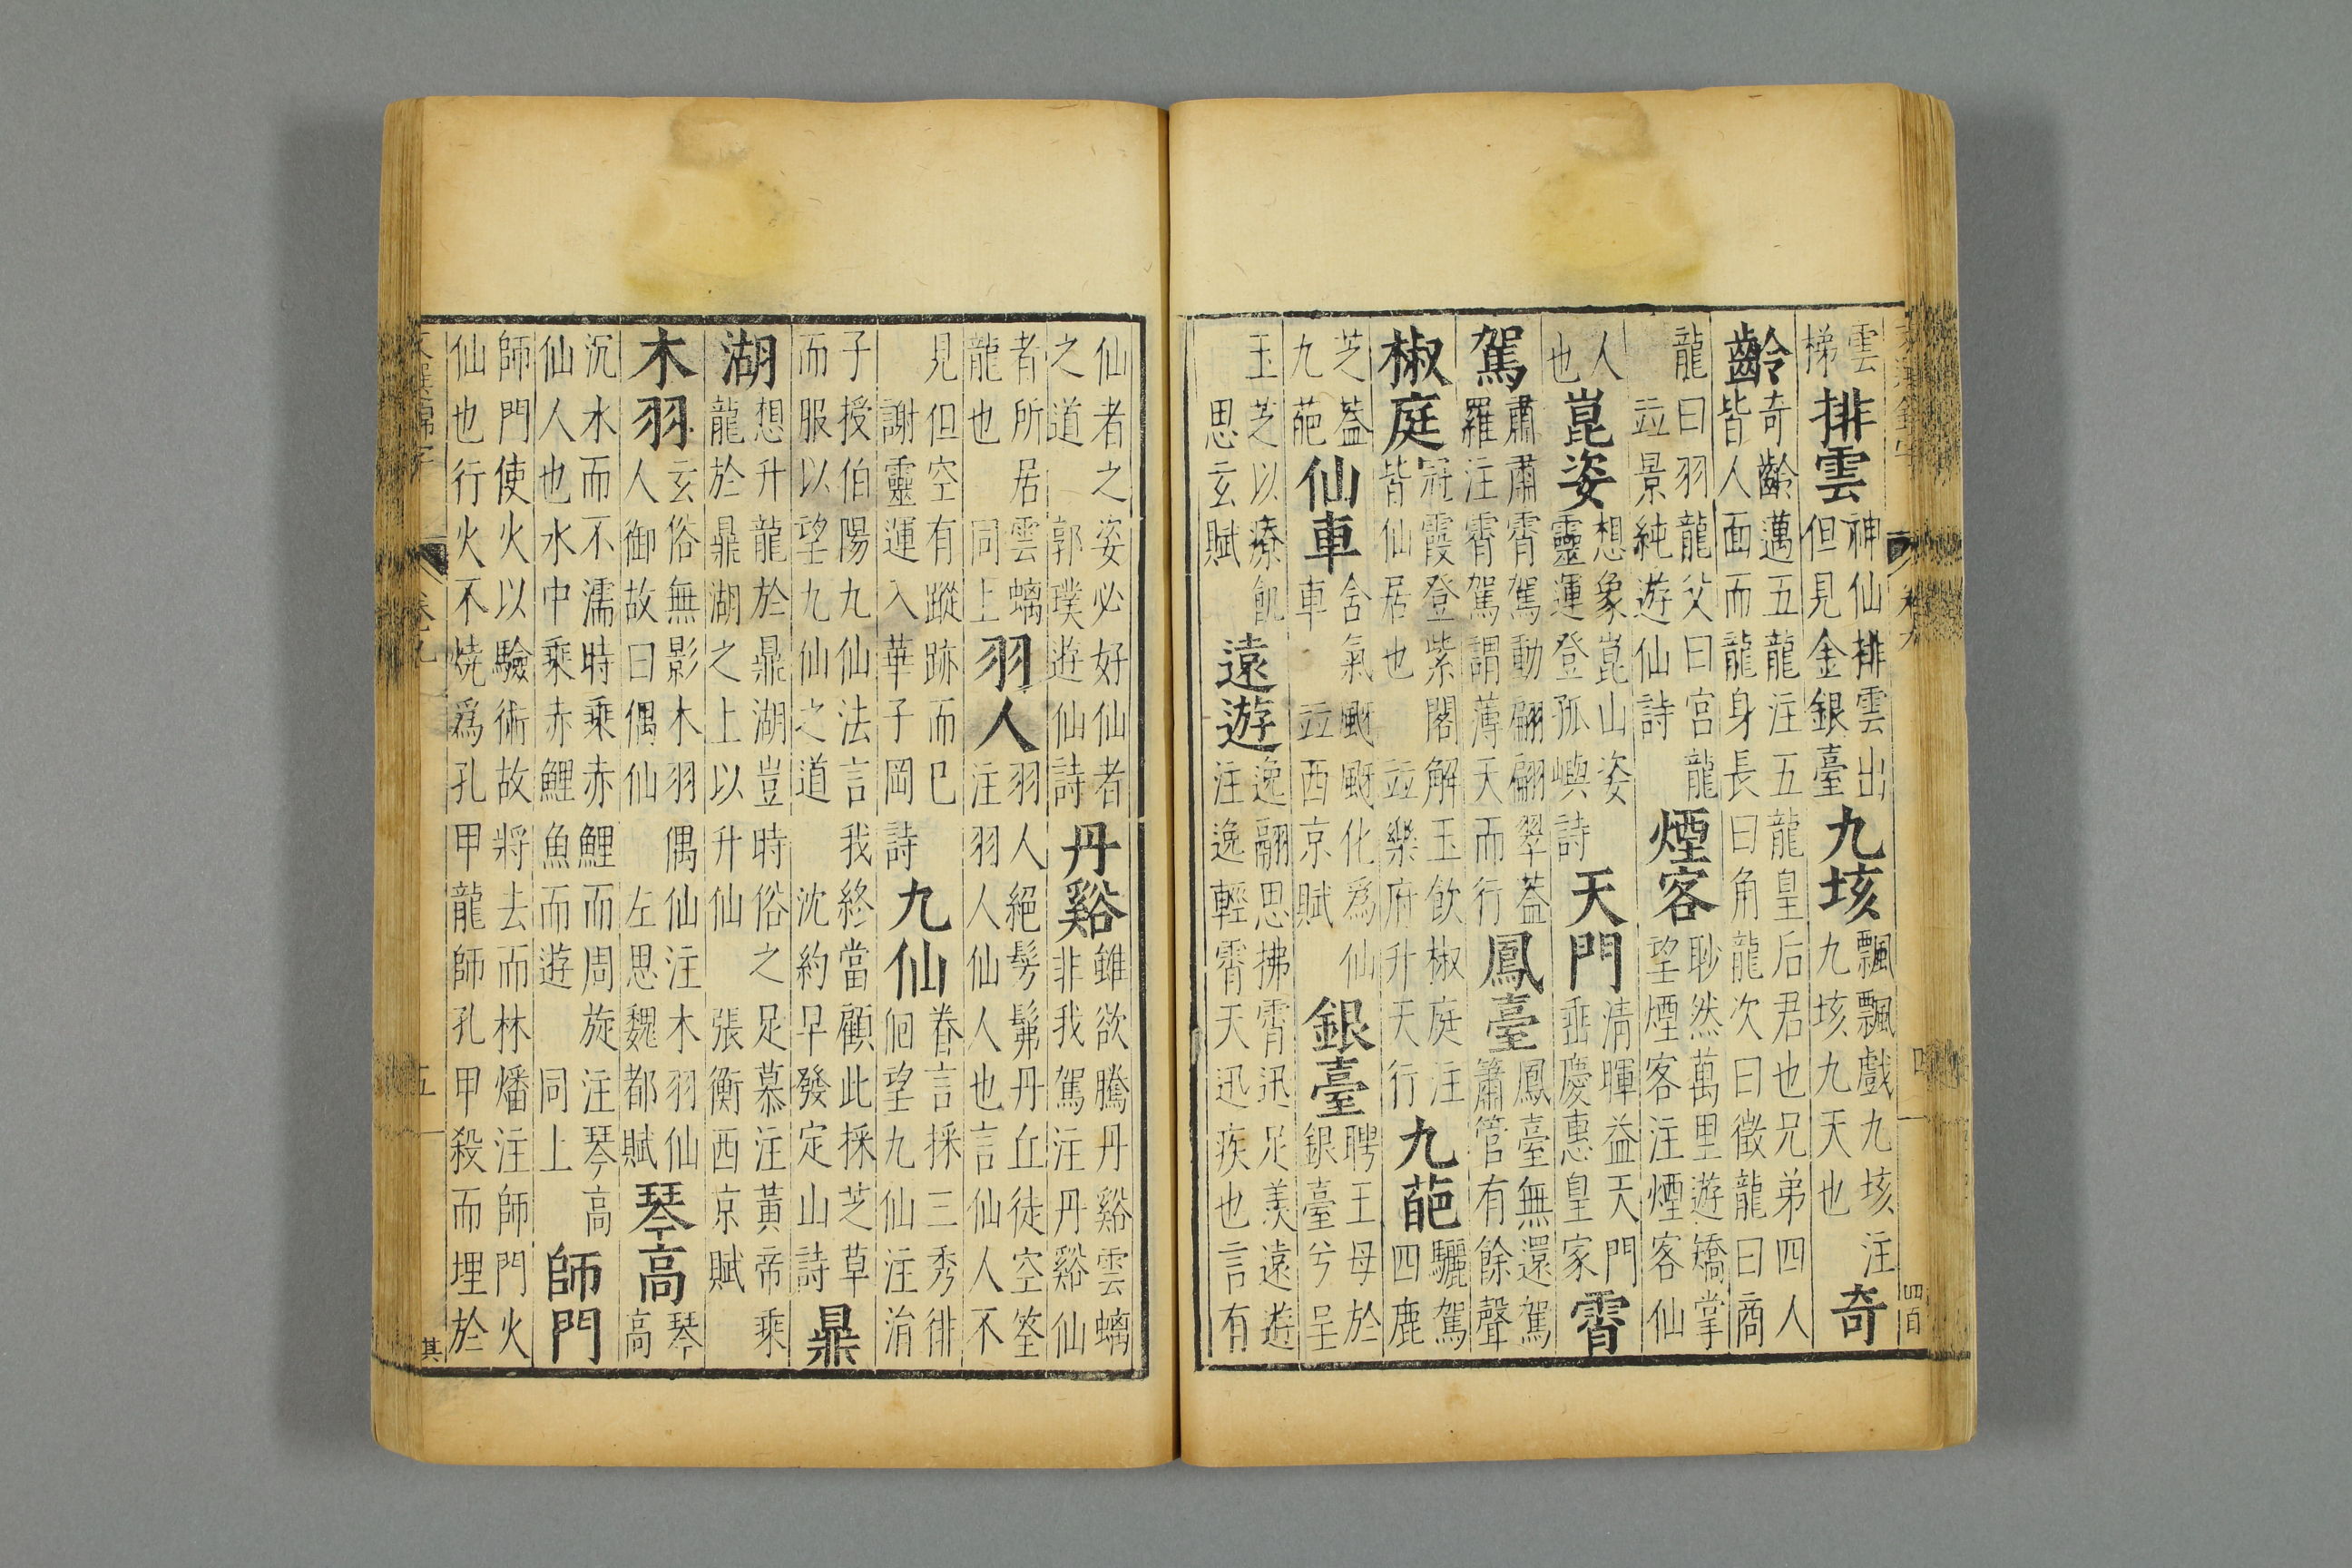 雲梯排雲神仙排雲出但見金銀臺九垓飄飄戲九垓注九垓九天也奇
齡奇齡邁五龍注五龍皇后君也兄弟四人皆人面而龍身長曰角龍次曰徵龍曰商
龍曰羽龍父曰宮龍並景純遊仙詩煙客眇然萬里遊矯掌望煙客注煙客仙
人也崑姿想象崑山姿靈運登孤嶼詩天門清暉益天門垂慶惠皇家霄
駕肅肅霄駕動翩翩翠蓋羅注霄駕謂薄天而行鳳臺鳳臺無還駕簫管有餘聲
椒庭冠霞登紫閣解玉飲椒庭注皆仙居也並樂府升天行九葩驪駕四鹿
芝蓋九葩仙車含氣化爲仙車並西京賦銀臺聘王母於銀臺兮呈
玉芝以療飢思玄賦遠遊逸翮思拂霄迅足羨遠遊注逸輕霄天迅疾也言有
四百
仙者之姿必好仙者之道郭璞遊仙詩丹谿雖欲騰丹谿雲螭非我駕注丹谿仙
者所居雲螭龍也同上羽人羽人絕髣髴丹丘徒空筌注羽人仙人也言仙人不
見但空有蹤跡而已謝靈運入華子岡詩九仙眷言採三秀徘徊望九仙注涓
子授伯陽九仙法言我終當顧此採芝草而服以望九仙之道沈約早發定山詩鼎
湖想升龍於鼎湖豈時俗之足慕注黃帝乘龍於鼎湖之上以升仙張衡西京賦
木羽玄俗無影木羽偶仙注木羽仙人御故曰偶仙左思魏都賦琴高琴高
沉水而不濡時乘赤鯉而周旋注琴高仙人也水中乘赤鯉魚而遊同上師門
師門使火以驗術故將去而林燔注師門火仙也行火不燒爲孔甲龍師孔甲殺而埋於
五
其